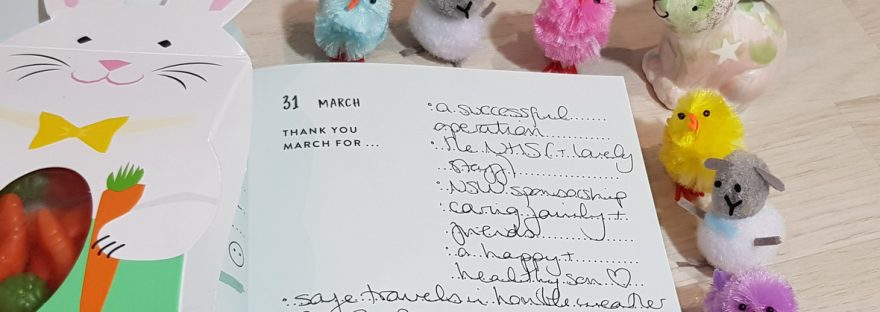 31 MARCH
THANK YOU
MARCH FOR ...
• a successful
operation
• the NHS (+ lovely
staff)
• NSW sponsorship
• caring family +
friends
• a happy +
healthy son ♡
• safe travels in horrible weather